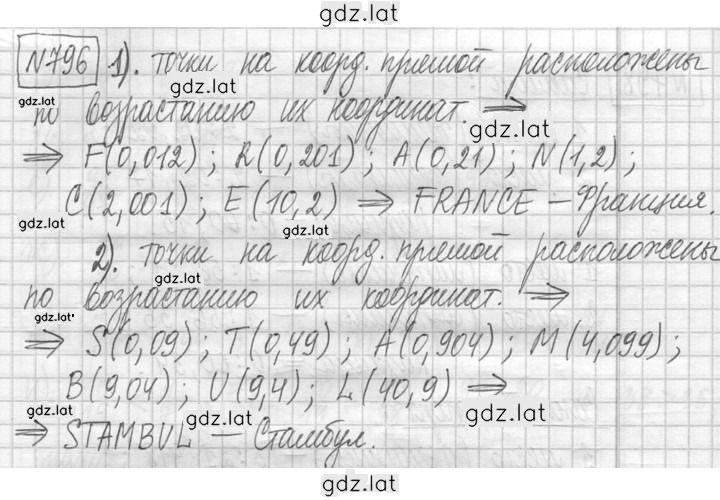 gdz.lat
N796 1). точки на коорд. прямой расположены
gdz.lat
gdz.lat
по возрастанию их координат. ⟹
gdz.lat
⟹ F(0,012); R(0,201); A(0,21); N(1,2);
C(2,001); E(10,2) ⟹ FRANCE – Франция.
gdz.lat
gdz.lat
2). точки на коорд. прямой расположены
gdz.lat
по возрастанию их координат. ⟹
gdz.lat
⟹ S(0,09); T(0,49); A(0,904); M(4,099);
B(9,04); U(9,4); L(40,9) ⟹
gdz.lat
gdz.lat
⟹ STAMBUL – Стамбул.
gdz.lat